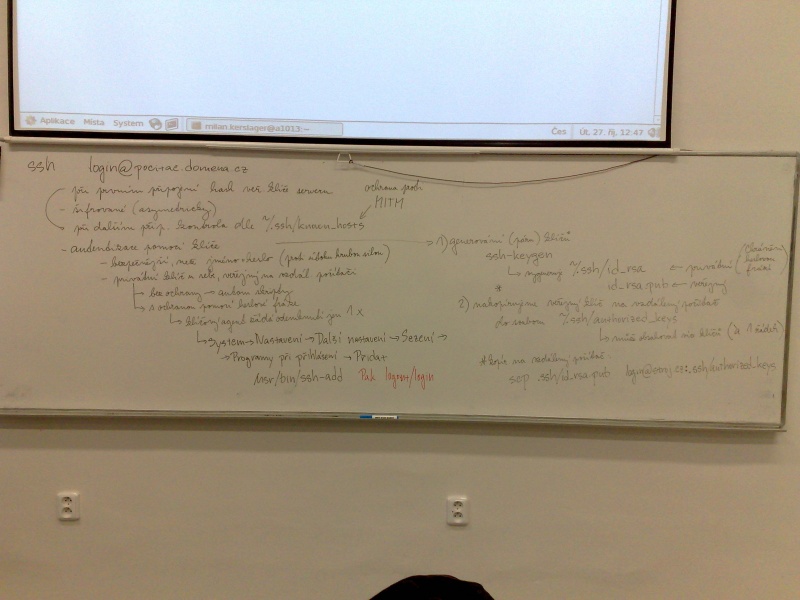 Aplikace Místa System milan.kerslager@a1013:~ Čes Út, 27. říj, 12:47
ssh login@pocitac.domena.cz
- při prvním připojení hash veř. klíče serveru
- šifrované (asymetricky)
- při dalším přip. kontrola dle ~/.ssh/known_hosts
ochrana proti
MITM
- autentizace pomocí klíče
- bezpečnější, než jméno+heslo (proti útoku hrubou silou)
- privátní klíč u sebe, veřejný na vzdál. počítači
bez ochrany → autom. skripty
s ochranou pomocí heslové fráze
klíčový agent žádá odemknutí jen 1x
System → Nastavení → Další nastavení → Sezení →
→ Programy při přihlášení → Přidat
/usr/bin/ssh-add Pak logout/login
1) generování (páru) klíčů
ssh-keygen
~/.ssh/id_rsa ← privátní (
heslovou
frází
id_rsa.pub ← veřejný
*
2) nakopírujeme veřejný klíč na vzdálený počítač
do souboru ~/.ssh/authorized_keys
může obsahovat více klíčů (à 1 řádek)
* kopie na vzdálený počítač:
scp .ssh/id_rsa.pub .ssh/authorized_keys